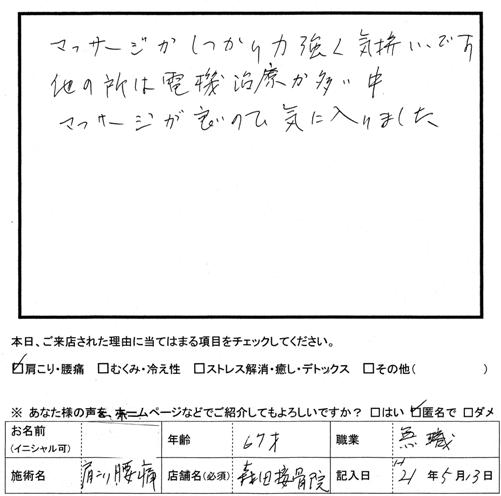 マッサージがしっかり力強く気持いいです
他の所は電機治療が多い中
マッサージが良いので気に入りました
本日、ご来店された理由に当てはまる項目をチェックしてください。
☑肩こり・腰痛 □むくみ・冷え性 □ストレス解消・癒し・デトックス □その他( )
※ あなた様の声を、ホームページなどでご紹介してもよろしいですか? □はい ☑匿名で □ダメ
お名前
(イニシャル可) 年齢 67才 職業 無職
施術名 肩こり腰痛 店舗名(必須) 森田接骨院 記入日 H21年5月13日